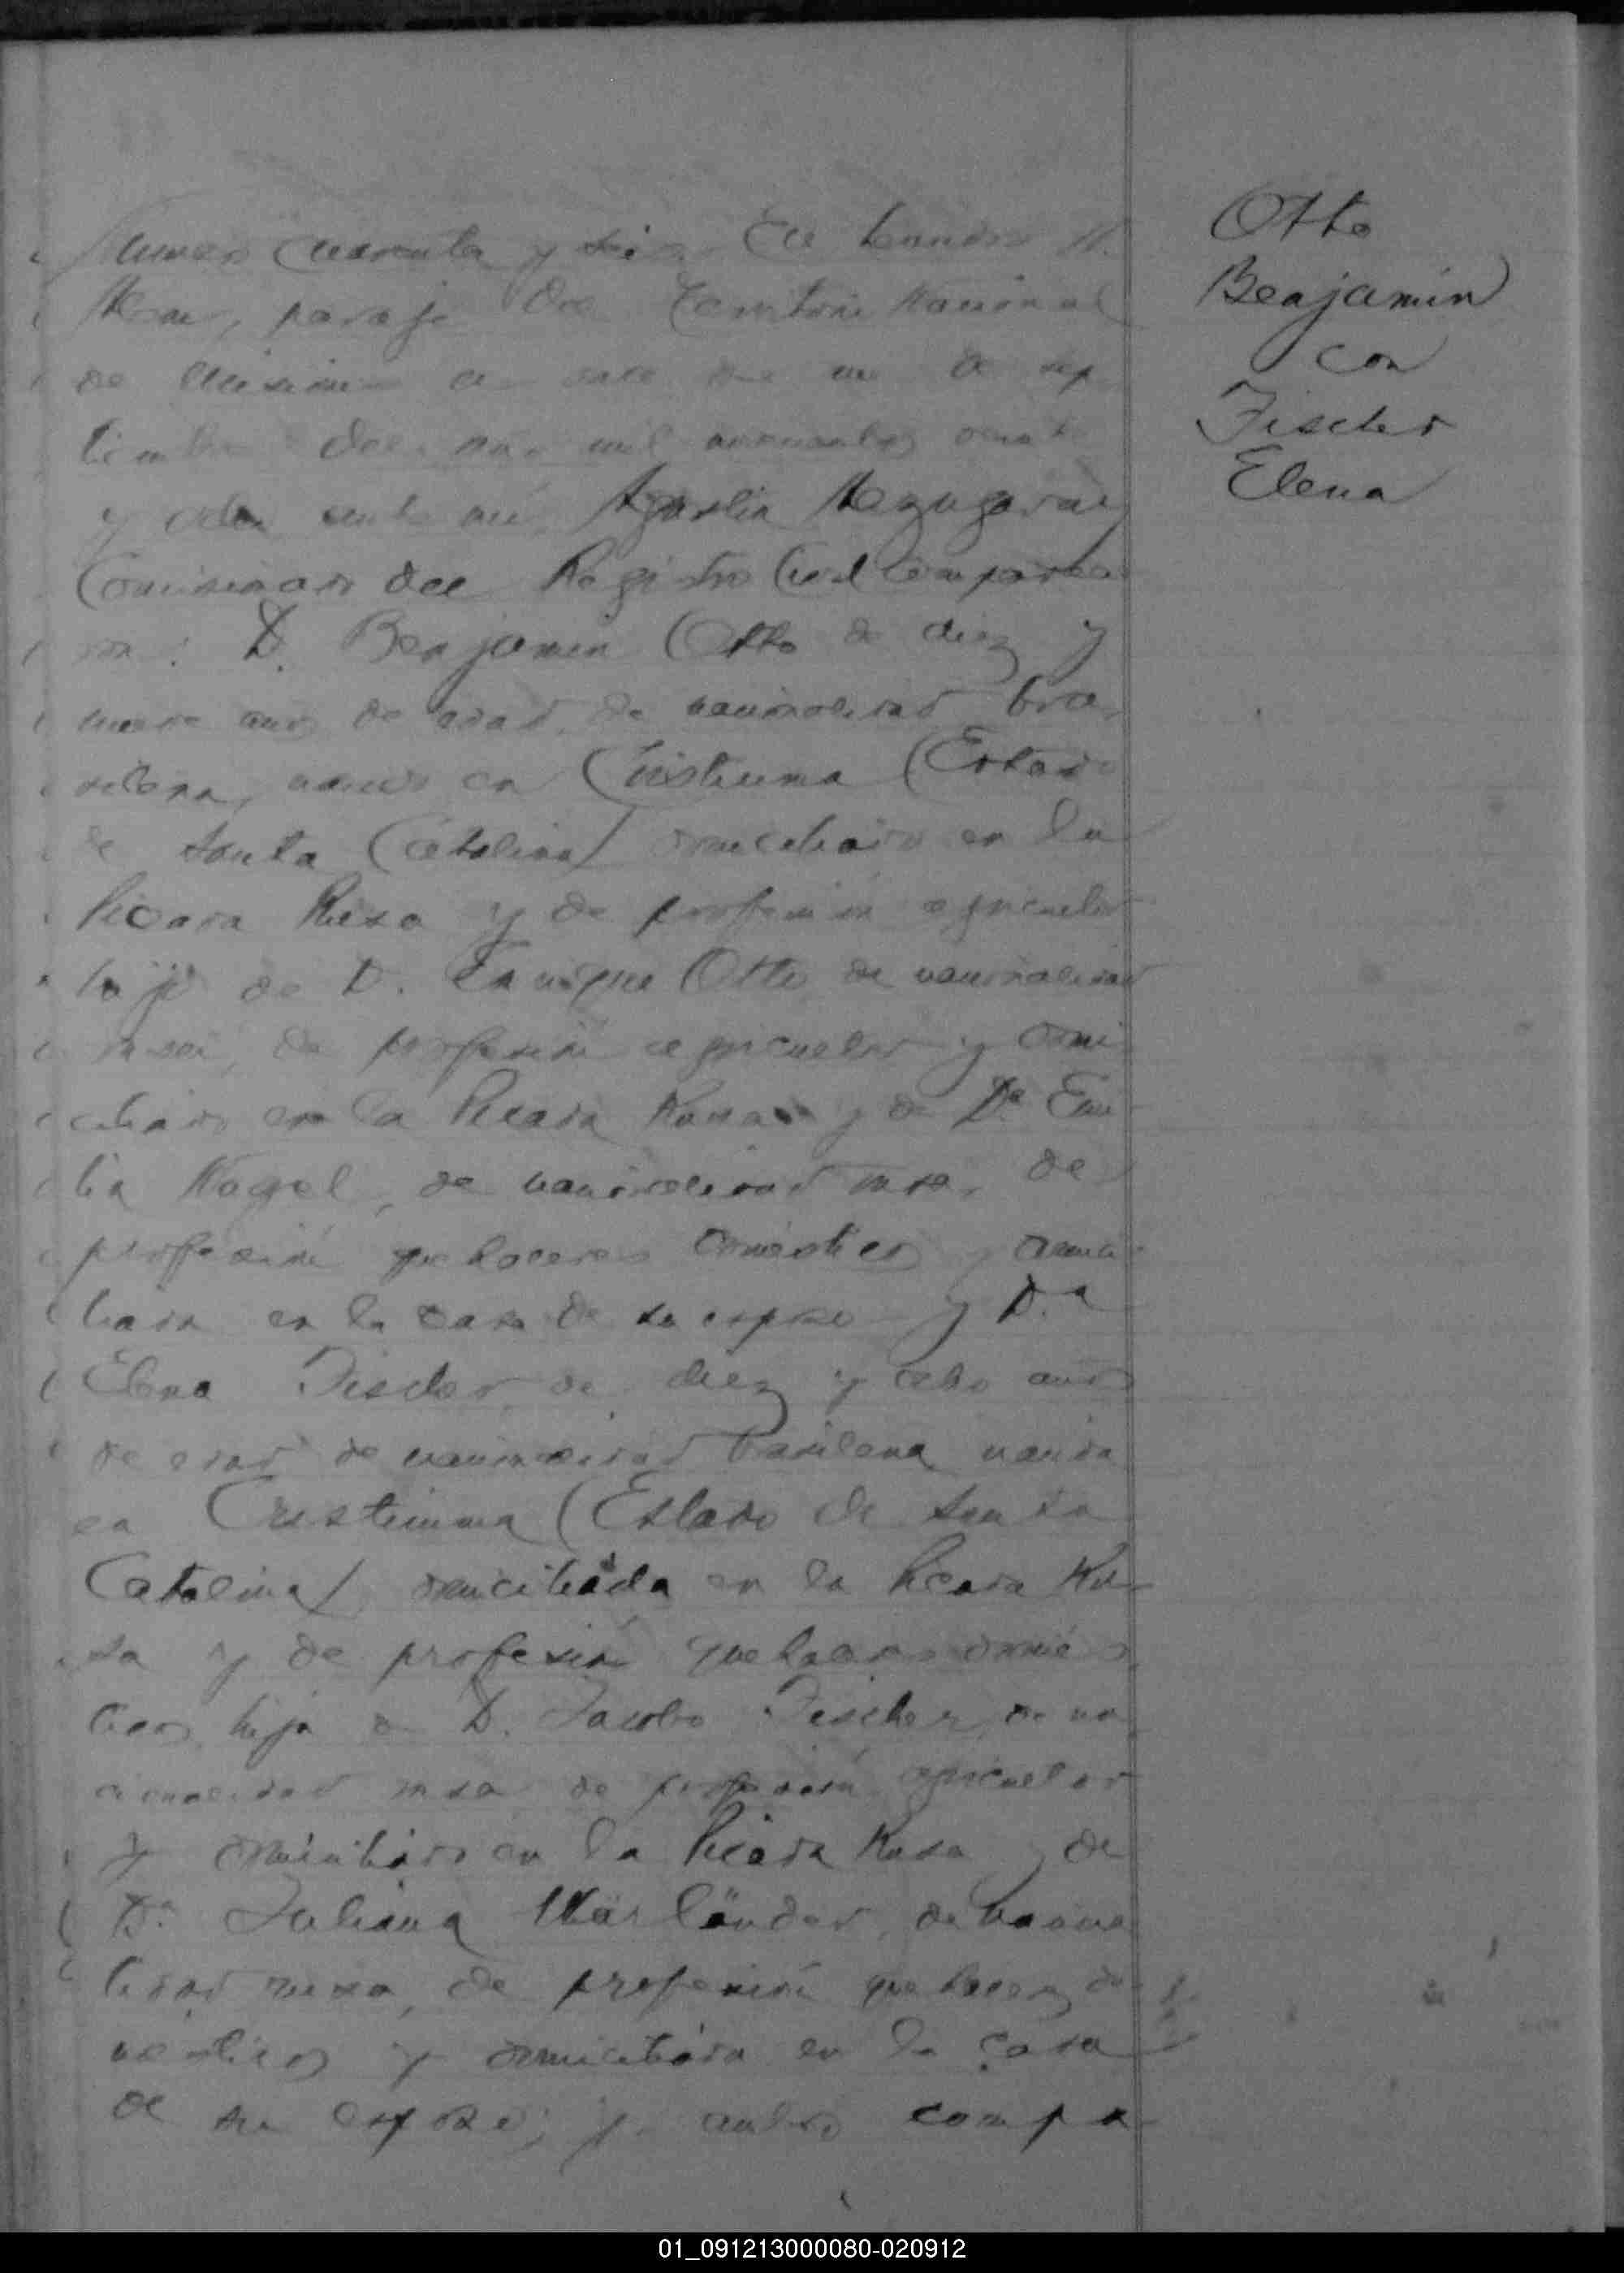 Numero Cuarenta y seis En Leandro N.
Alem, paraje del Territorio Nacional
de Misiones a once de de sep
tiembre del año mil novecientos veinte
y ocho ante mí, Agustin
Comisionado del Registro Civil Comparecie
ron: D. Benjamin Otto de diez y
nueve años de edad, de nacionalidad bra
silena, nacido en Cristiuma (Estado
de Santa Catalina) domiciliado en la
Picada Rusa y de profesión agricultor
hijo de D. Enrique Otto de nacionalidad
rusa, de profesión agricultor y domi
ciliado en la Picada Rusa y de Da. Emi
lia Nagel, de nacionalidad rusa, de
profesión quehaceres domésticos y domici
liada en la casa de su esposo y D.a
Elena Fischer de diez y ocho años
de edad de nacionalidad brasilena nacida
en Cristiumma (Estado de Santa
Catalina) domiciliada en la Picada Ru
sa y de profesión quehaceres domés
ticos, hija de D. Jacobo Fischer, de na
cionalidad rusa de profesión agricultor
y domiciliado en la Picada Rusa y de
Da. Juliana de naciona
lidad rusa, de profesión quehaceres do
mésticos y domiciliada en la casa
de su esposo; y ambos compa
Otto
Benjamín
con
Fischer
Elena
01_091213000080-020912